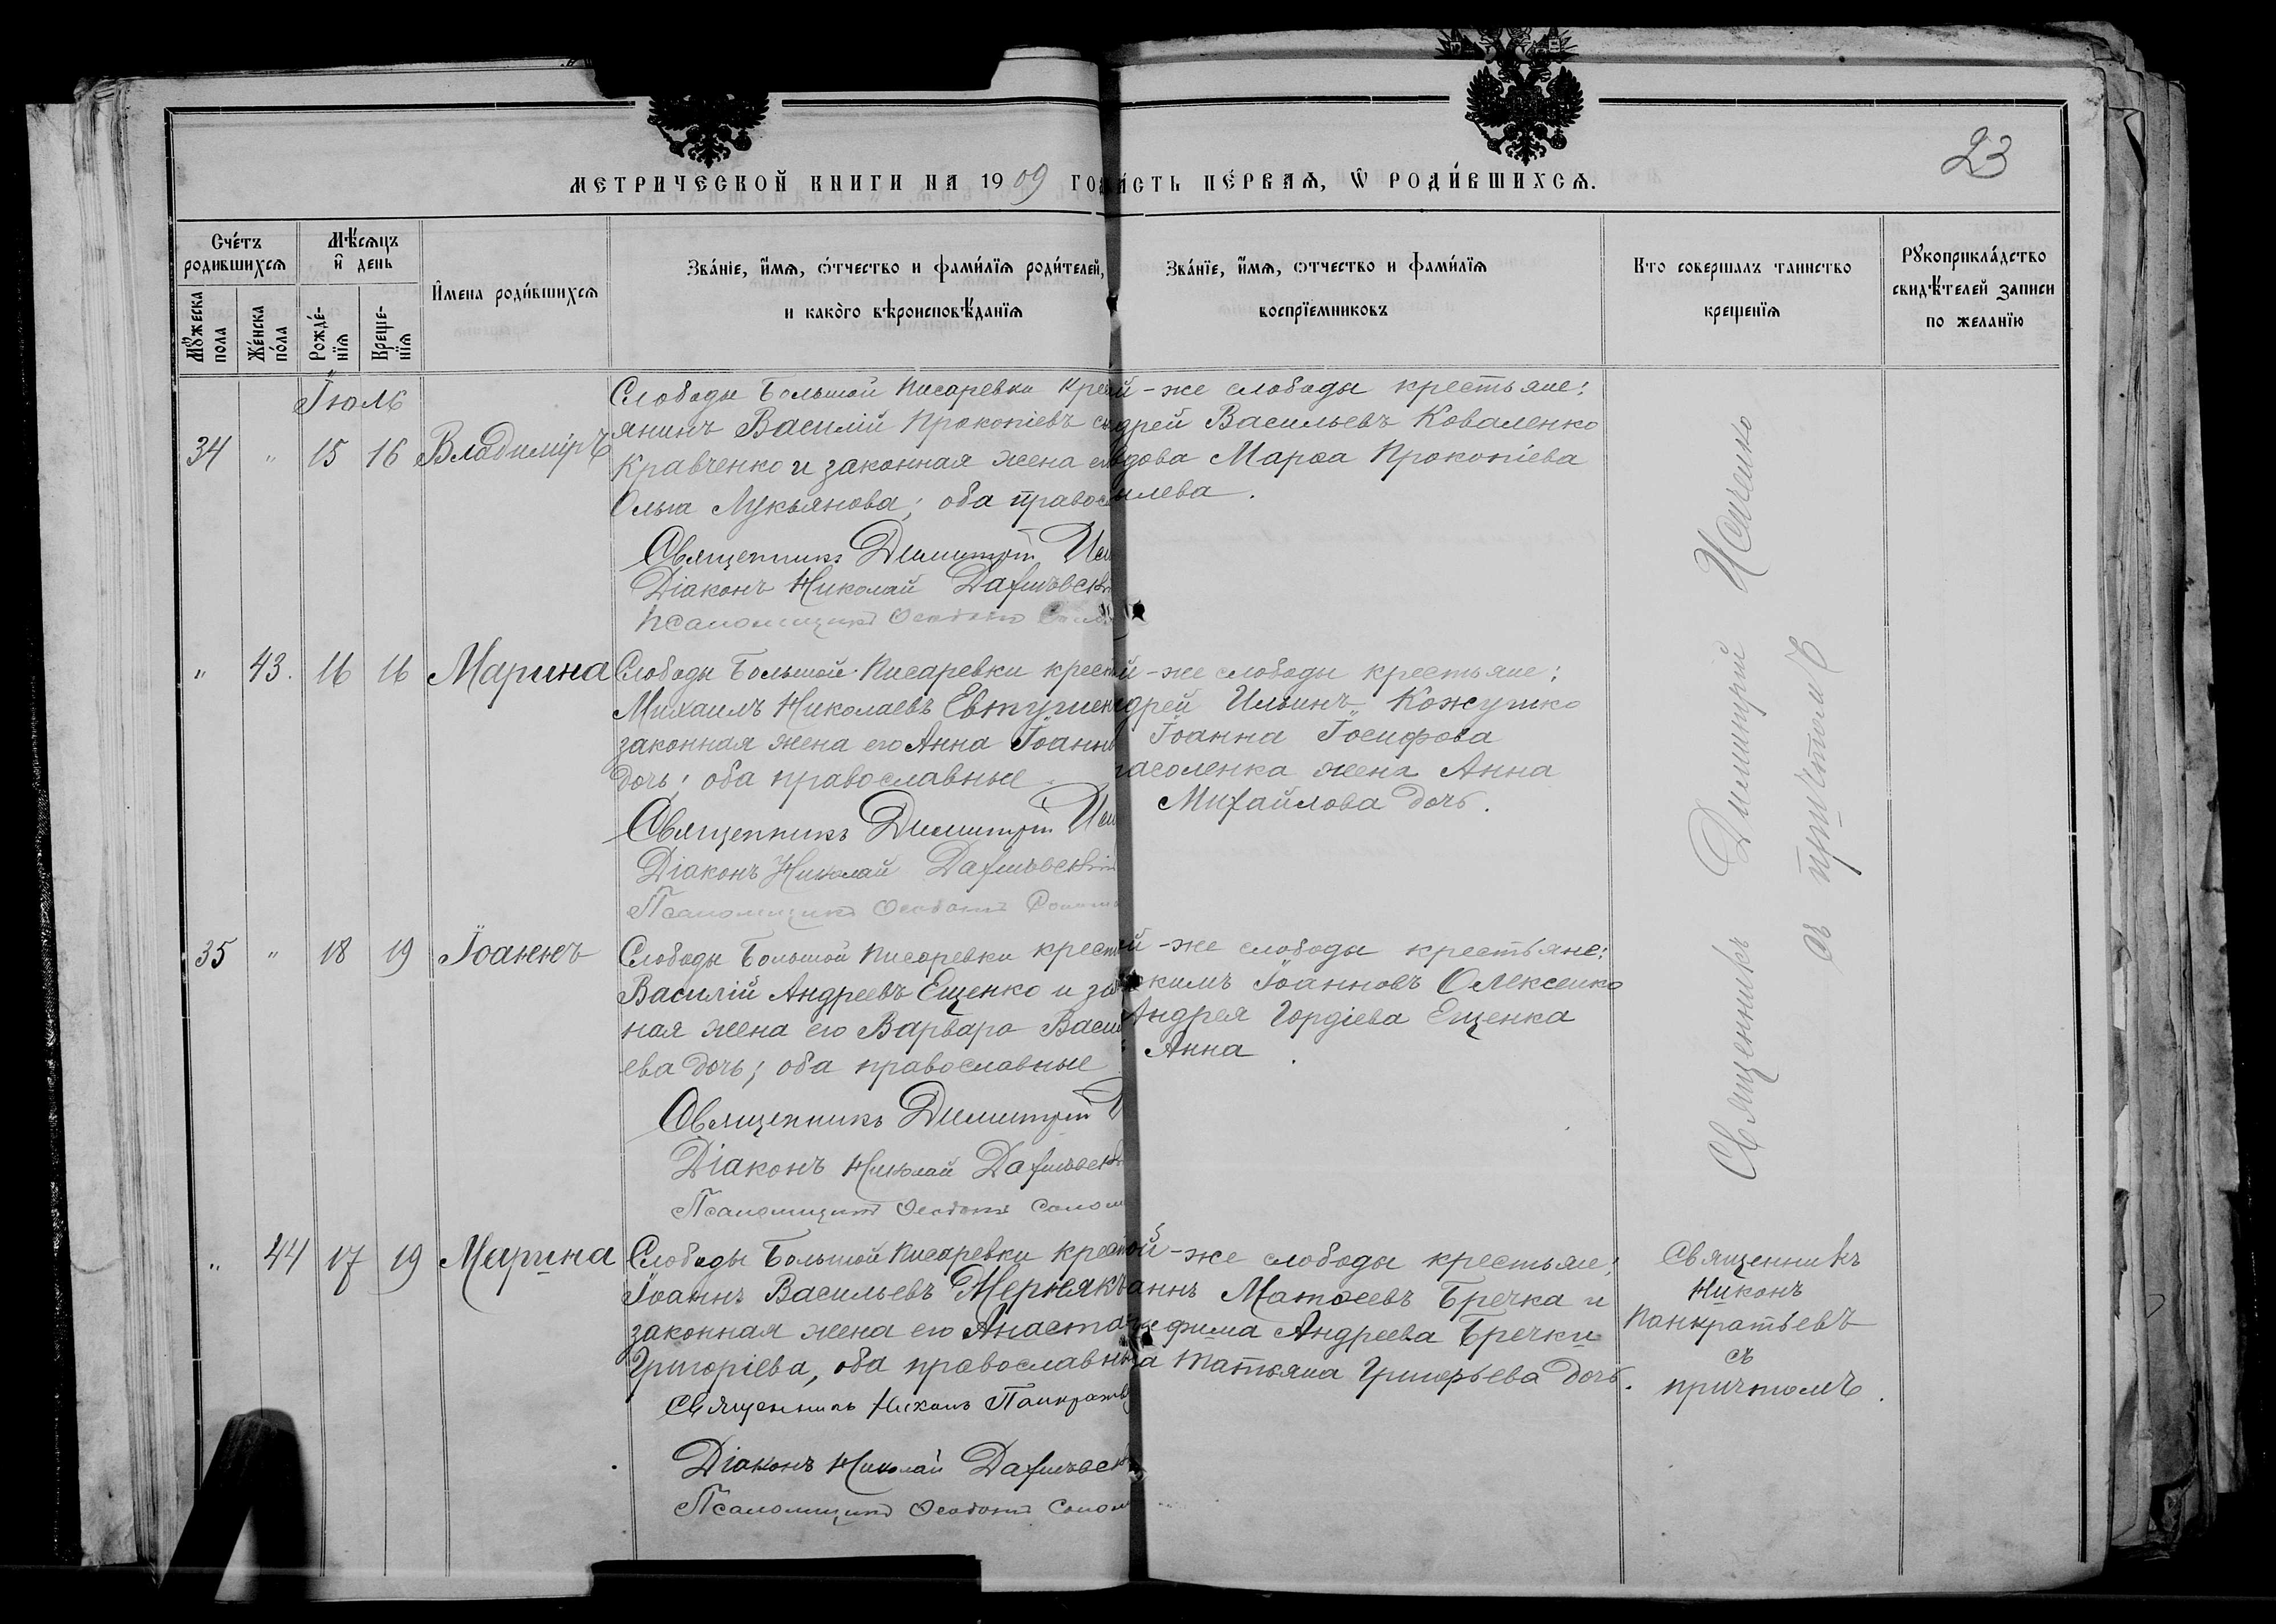 23
МЕТРИЧЕСКОЙ КНИГИ НА 1909 ГО
ÁСТЬ ПÉРВАѦ, Ѡ РОДИ́ВШИХСѦ.
Счéтъ родившихсѧ
Мꙋжеска пола
Жéнска пóла
Мѣ́сѧцъ и҆ день
Рождé-нїѧ
Креще-нїѧ
И҆мена роди́вшихсѧ
Звáнїе, и҆́мѧ, ѻ҆́тчество и фами́лїѧ роди́телей,
и какóго вѣроисповѣ́данїѧ
Звáнїе, и҆́мѧ, ѻтчество и фами́лїѧ
воспрїемниковъ
Кто совершалъ таинство
крещенїѧ
Рꙋкоприклáдство
свидѣ́телей записи
по желанїю
Іюль
34 " 15 16 Владиміръ
Слободы Большой Писаревки крес
янинъ Василій Прокопіевъ с
Кравченко и законная жена е
Ольга Лукьянова; оба правос
Священникъ Димитрій Ис
Діаконъ Николай
Псаломщикъ Ѳеодотъ
й-же слободы крестьяне:
дрей Васильевъ Коваленко
дова Марѳа Прокопіева
илева.
" 43. 16 16 Марина
Слободы Большой-Писаревки крест
Михаилъ Николаевъ Евтушен
законная жена его Анна Іоанн
дочь; оба православные
Священникъ Димитрій Ис
Діаконъ Николай
Псаломщикъ Ѳеодотъ Солом
й-же слободы крестьяне:
дрей Ильинъ Кожушко
Іоанна Іосифова
асоленка жена Анна
Михайлова дочь.
35 " 18 19 Іоаннъ
Слободы Большой Писаревки крест
Василій Андреевъ Ещенко и за
ная жена его Варвара Васил
ева дочь; оба православные
Священникъ Димитрій
Діаконъ Николай
Псаломщикъ Ѳеодотъ Солом
ой-же слободы крестьяне:
кимъ Іоанновъ Олексенко
Андрея Гордіева Ещенка
Анна.
Священникъ Димитрій Исиченко
съ причтомъ
" 44 17 19 Марина
Слободы Большой Писаревки крест
Іоаннъ Васильевъ Мернякъ
законная жена его Анаста
Григоріева, оба православны
Священникъ Никонъ Панкратьев
Діаконъ Николай
Псаломщикъ Ѳеодотъ Солом
ой-же слободы крестьяне:
аннъ Матѳеевъ Бречка и
фима Андреева Бречки
а Татьяна Григорьева дочь.
Священникъ
Никонъ
Панкратьевъ
съ
причтомъ.